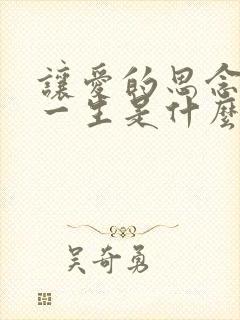 讓愛的思念
一生是什麼
吳奇勇